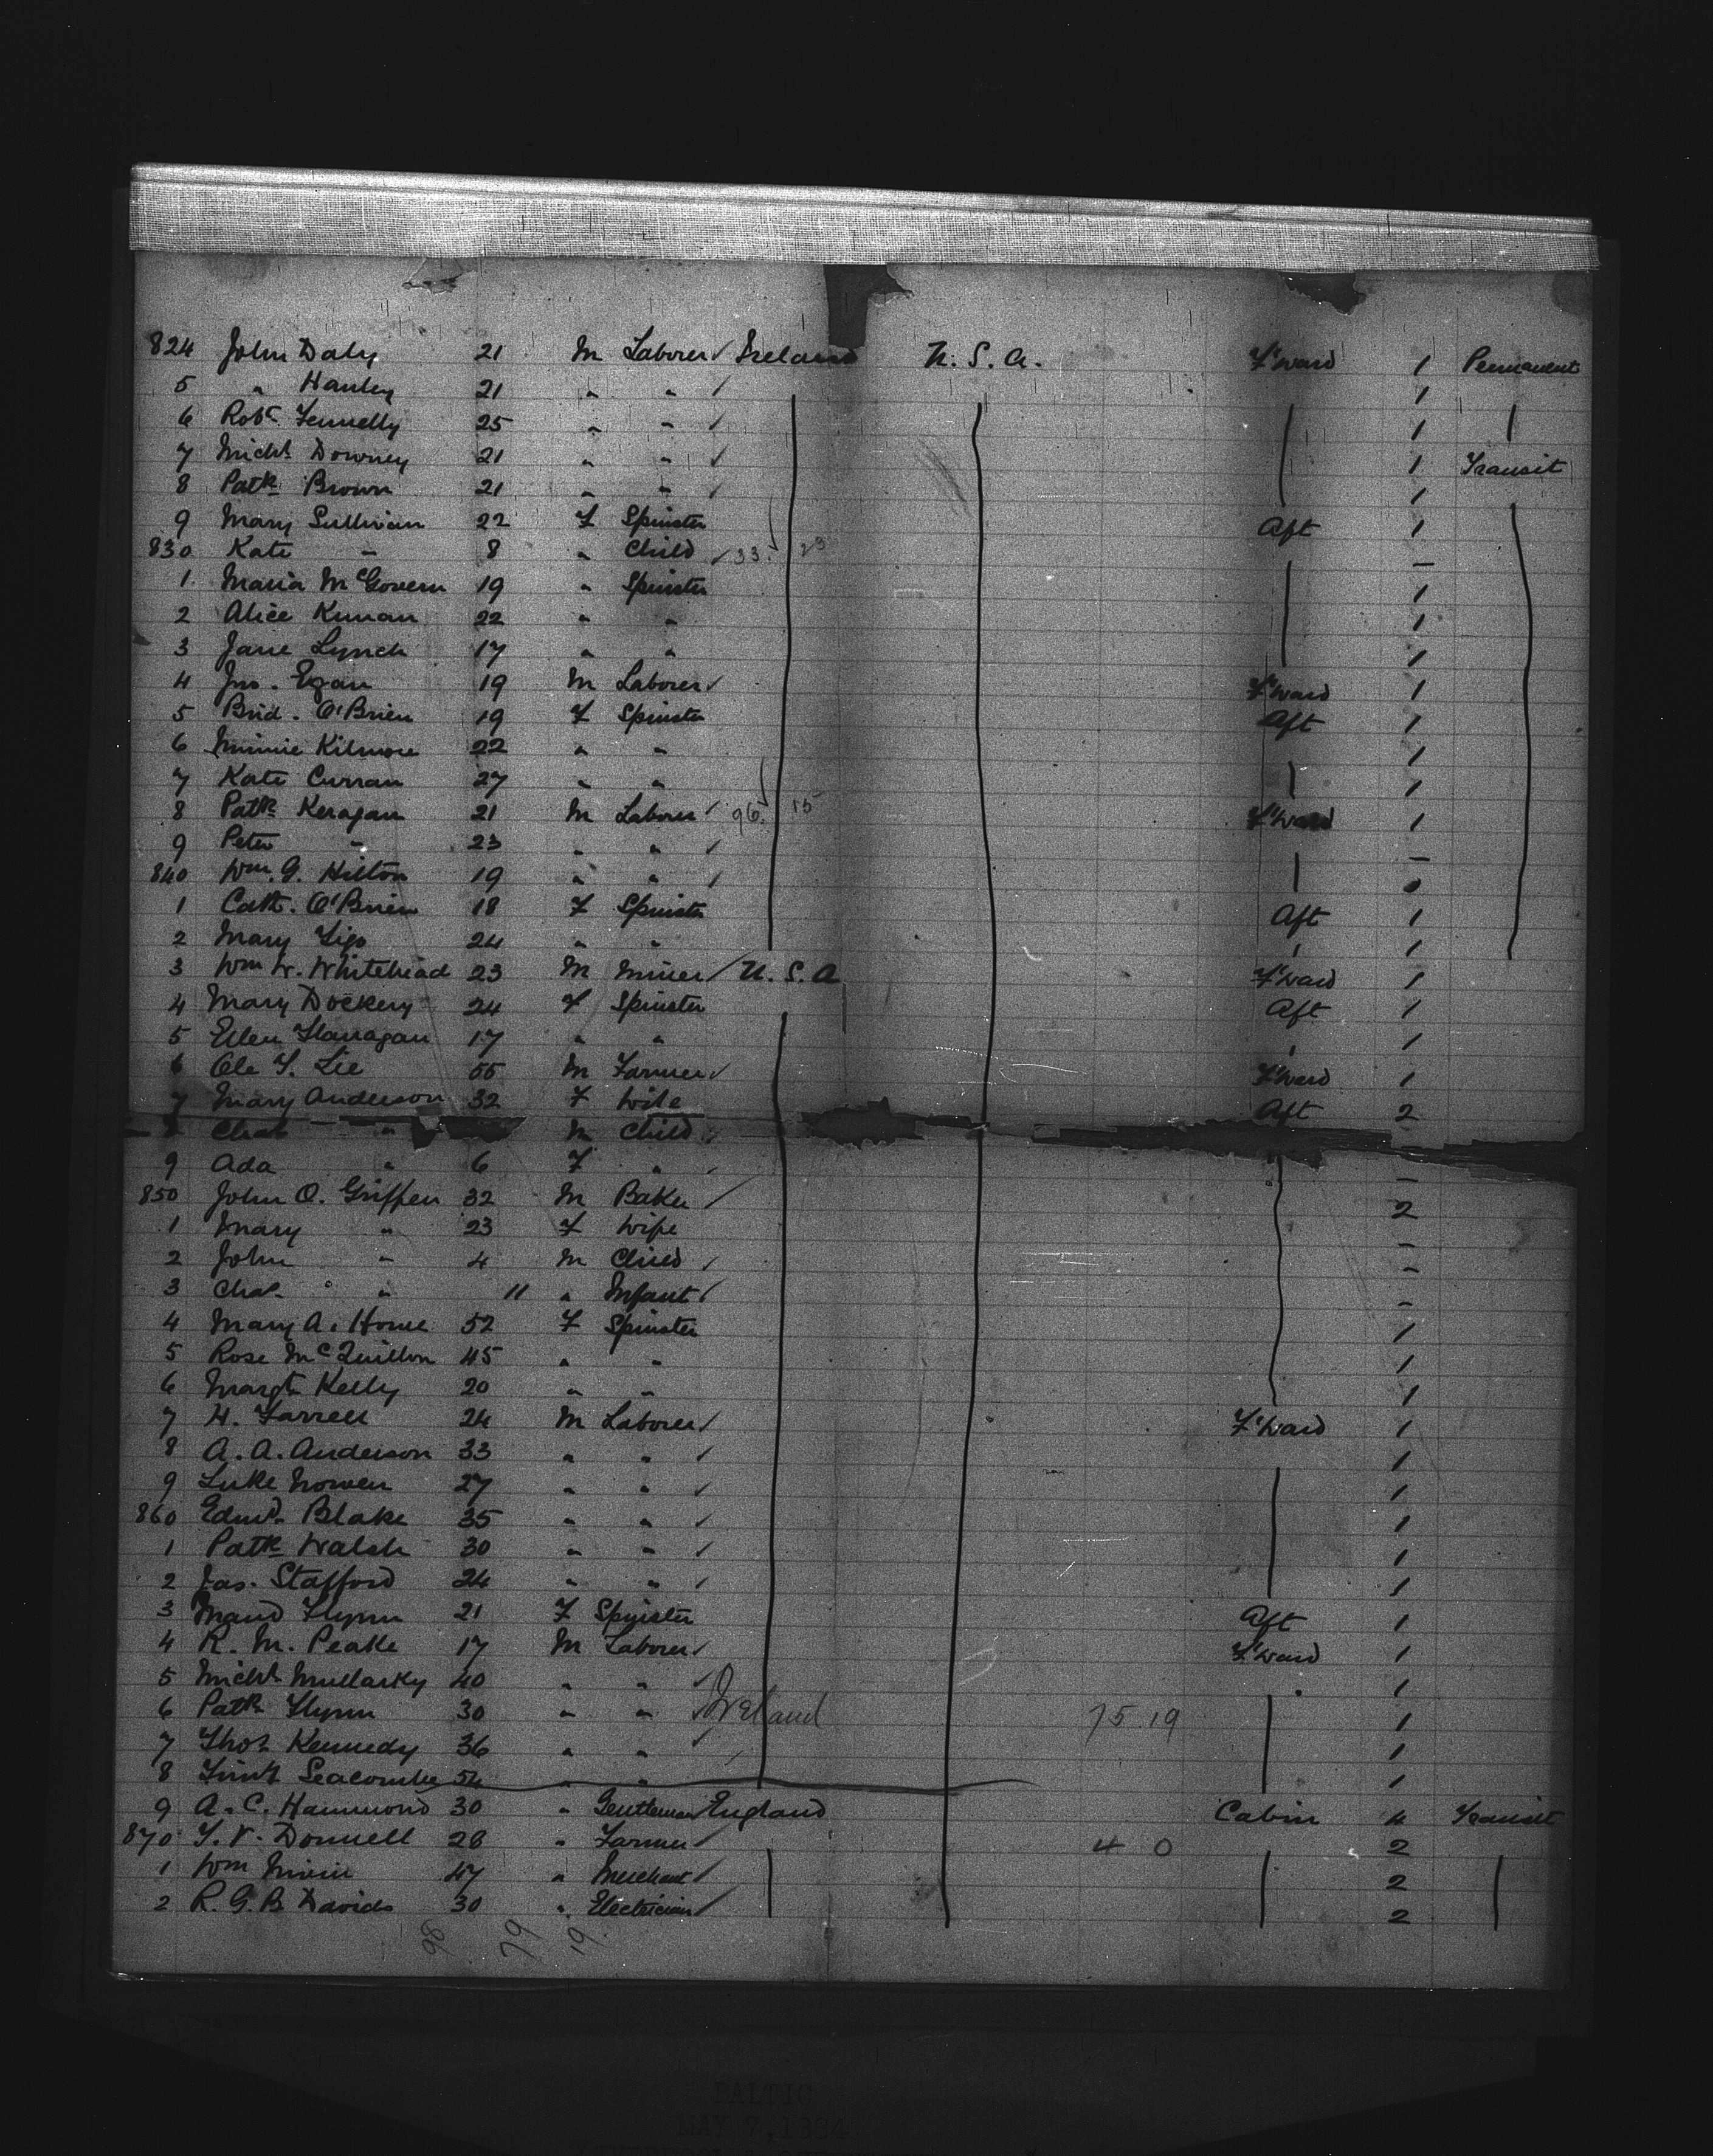 824 John Daly 21 M Laborer Ireland U.S.A. F'ward 1 Permanent
5 " Hanley 21 " " 1
6 Robt Fennelly 25 " " 1
7 Michl Downey 21 " " 1 Transit
8 Patk Brown 21 " " 1
9 Mary Sullivan 22 F Spinster Aft 1
830 Kate " 8 " Child 33 23 –
1 Maria McGovern 19 " Spinster 1
2 Alice Kunan 22 " " 1
3 Jane Lynch 17 " " 1
4 Jno. Egan 19 M Laborer F'ward 1
5 Brid. O'Brien 19 F Spinster Aft 1
6 Minnie Kilmore 22 " " 1
7 Kate Curran 27 " " 1
8 Patk Keragan 21 M Laborer 96 15 F'ward 1
9 Peter " 23 " " –
840 Wm. G. Hilton 19 " "
1 Cath. O'Brien 18 F Spinster Aft 1
2 Mary 24 " " ' 1
3 Wm W. Whitehead 23 M Miner U.S.A F'ward 1
4 Mary Dockery 24 F Spinster Aft 1
5 Ellen Flanagan 17 " " ' 1
6 Ole T. Lie 55 M Farmer F'ward 1
7 Mary Anderson 32 F Wife Aft 2
Chas " M Child
9 Ada " 6 F " –
850 John O. Griffen 32 M Baker 2
1 Mary " 23 F Wife –
2 John " 4 M Child –
3 Chas. " 11 " Infant –
4 Mary A. Horne 52 F Spinster 1
5 Rose McQuillon 45 " " 1
6 Margt Kelly 20 " " 1
7 H. Farrell 24 M Laborer F'ward 1
8 A. A. Anderson 33 " " 1
9 Luke 27 " " 1
860 Edmd. Blake 35 " " 1
1 Patk Walsh 30 " " 1
2 Jas. Stafford 24 " " 1
3 Maud Flynn 21 F Spinster Aft 1
4 R. M. Peake 17 M Laborer F'ward 1
5 Michl Mullarky 40 " " 1
6 Patk Flynn 30 " " Ireland 75 19 1
7 Thos Kennedy 36 " " 1
8 Seacombe 54 " " 1
9 A. C. Hammond 30 " Gentleman England Cabin 4 Transit
870 T. V. Donnell 28 " Farmer 4 0 2
1 Wm 47 " Merchant 2
2 R. G. B. Davids 30 " Electrician 2
98 79 19
BALTIC
MAY 7, 1884